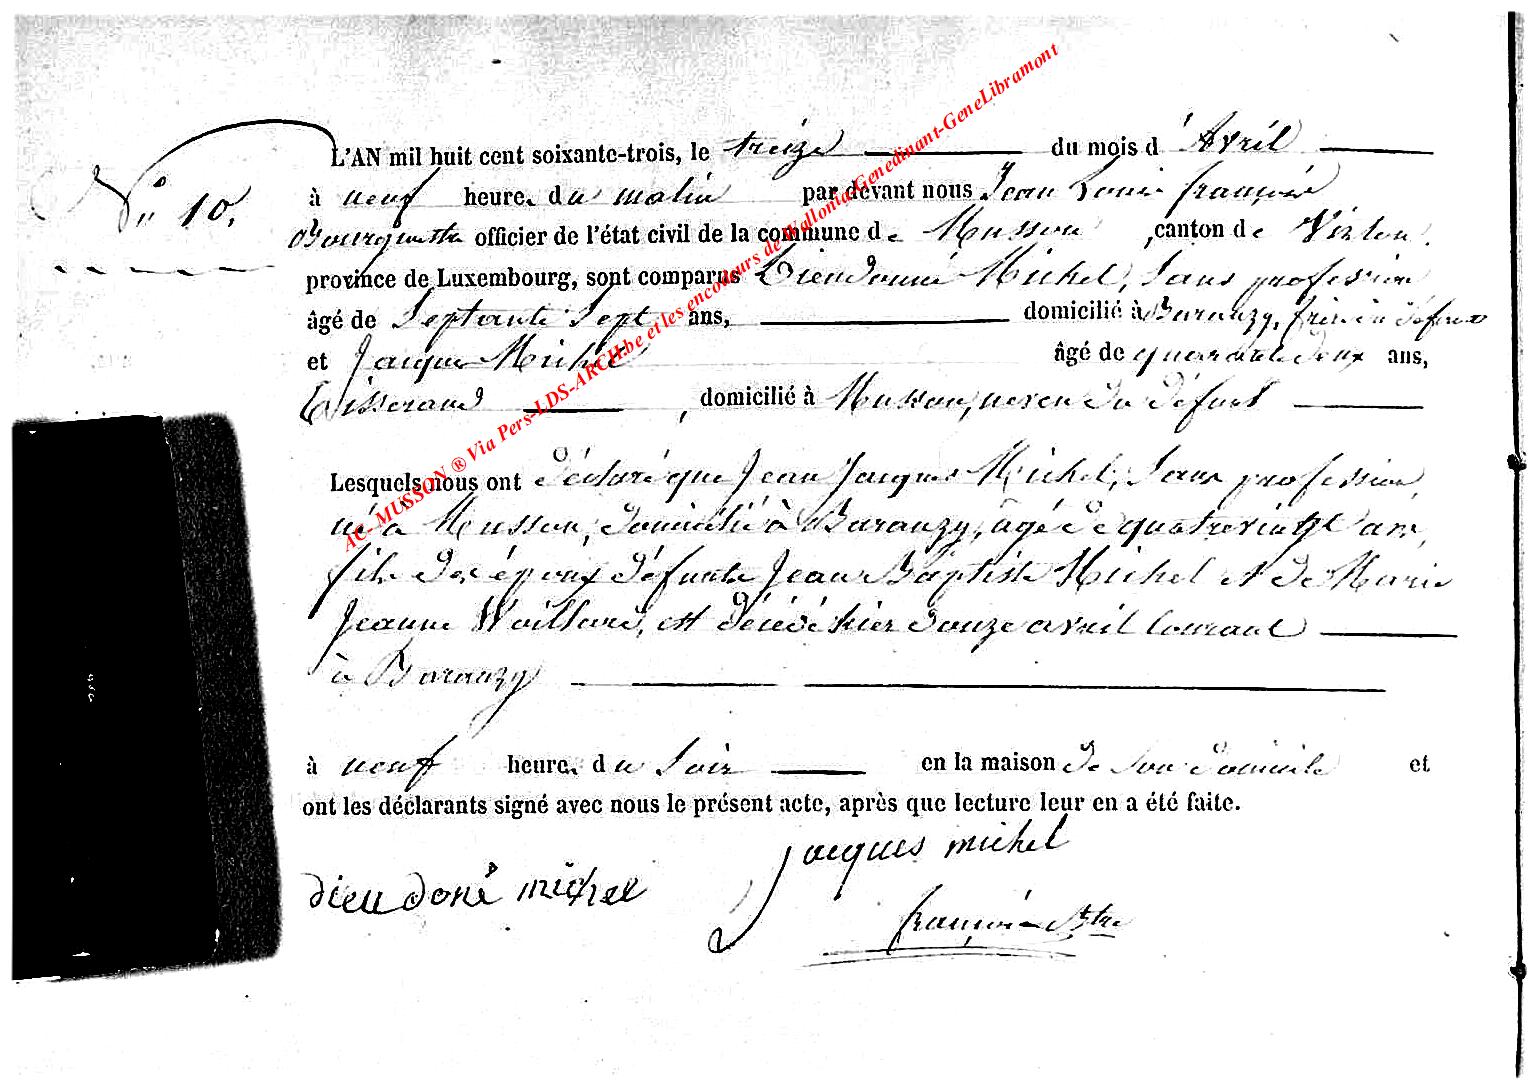 N° 10.
L'AN mil huit cent soixante-trois, le treize du mois d'Avril
à neuf heures du matin par devant nous Jean Louis françois
Bourguette officier de l'état civil de la commune de Musson, canton de Virton.
province de Luxembourg, sont comparus Dieudonné Michel, sans profession
âgé de Septante Sept ans, domicilié à Baranzy, frère du défunt
et Jacques Michel âgé de quarante deux ans,
Tisserand, domicilié à Musson, neveu du défunt
Lesquels nous ont déclaré que Jean Jacques Michel, sans profession,
né à Musson, domicilié à Baranzy, âgé de quatrevingt ans,
fils des époux défunts Jean Baptiste Michel et de Marie
Jeanne Waillard, est décédé hier douze avril courant
à Baranzy
à neuf heures du soir en la maison de son domicile et
ont les déclarants signé avec nous le présent acte, après que lecture leur en a été faite.
jacques michel
dieu doné michel
françois Btte
AC- MUSSON ® Via Pers-LDS-ARCH.be et les encodeurs de Wallonia-Genedinant-GeneLibramont